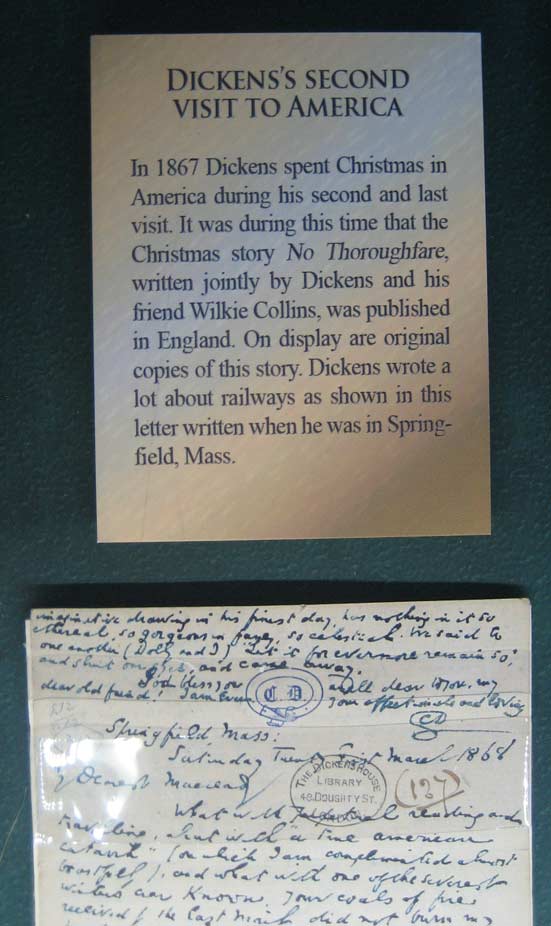 DICKENS'S SECOND
VISIT TO AMERICA
In 1867 Dickens spent Christmas in
America during his second and last
visit. It was during this time that the
Christmas story No Thoroughfare,
written jointly by Dickens and his
friend Wilkie Collins, was published
in England. On display are original
copies of this story. Dickens wrote a
lot about railways as shown in this
letter written when he was in Spring-
field, Mass.
imaginative drawing in his finest day, has nothing in it so
ethereal, so gorgeous in fancy, so celestial. We said to
one another (Dolby and I) "Let it for evermore remain so,"
and shut our eyes, and came away.
God bless you and all dear to you, my
dear old friend! I am ever your affectionate and loving
C D
CD
Springfield, Mass:
Saturday Twenty First March 1868
My Dearest Macready
THE DICKENS HOUSE
LIBRARY
48 DOUGHTY ST.
LONDON
(127)
What with perpetual reading and
travelling, what with a "true american
catarrh" (on which I am complimented almost
boastfully), and what with one of the severest
winters ever known, your coals of fire
received by the last mail did not burn my